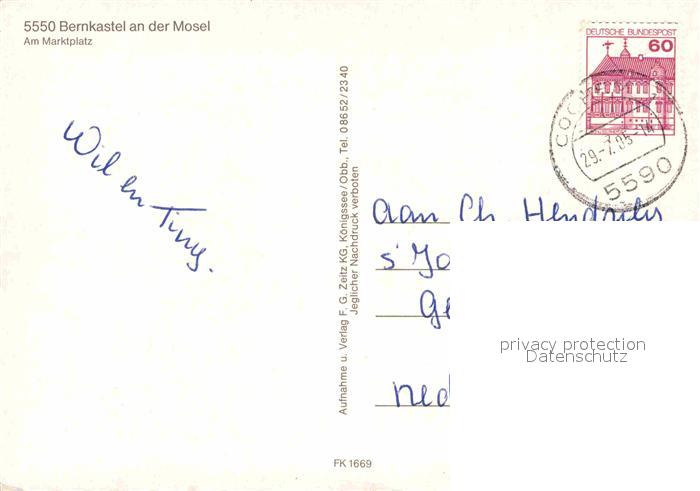 5550 Bernkastel an der Mosel
Am Marktplatz
DEUTSCHE BUNDESPOST
60
29.-7.85-14
5590
Wil en Tiny.
Aufnahme u. Verlag F. G. Zeitz KG, Königssee/Obb., Tel. 08652/2340
Jeglicher Nachdruck verboten
aan Ch. Hendriks
s' Jo
Ge
privacy protection
Datenschutz
Ned
FK 1669